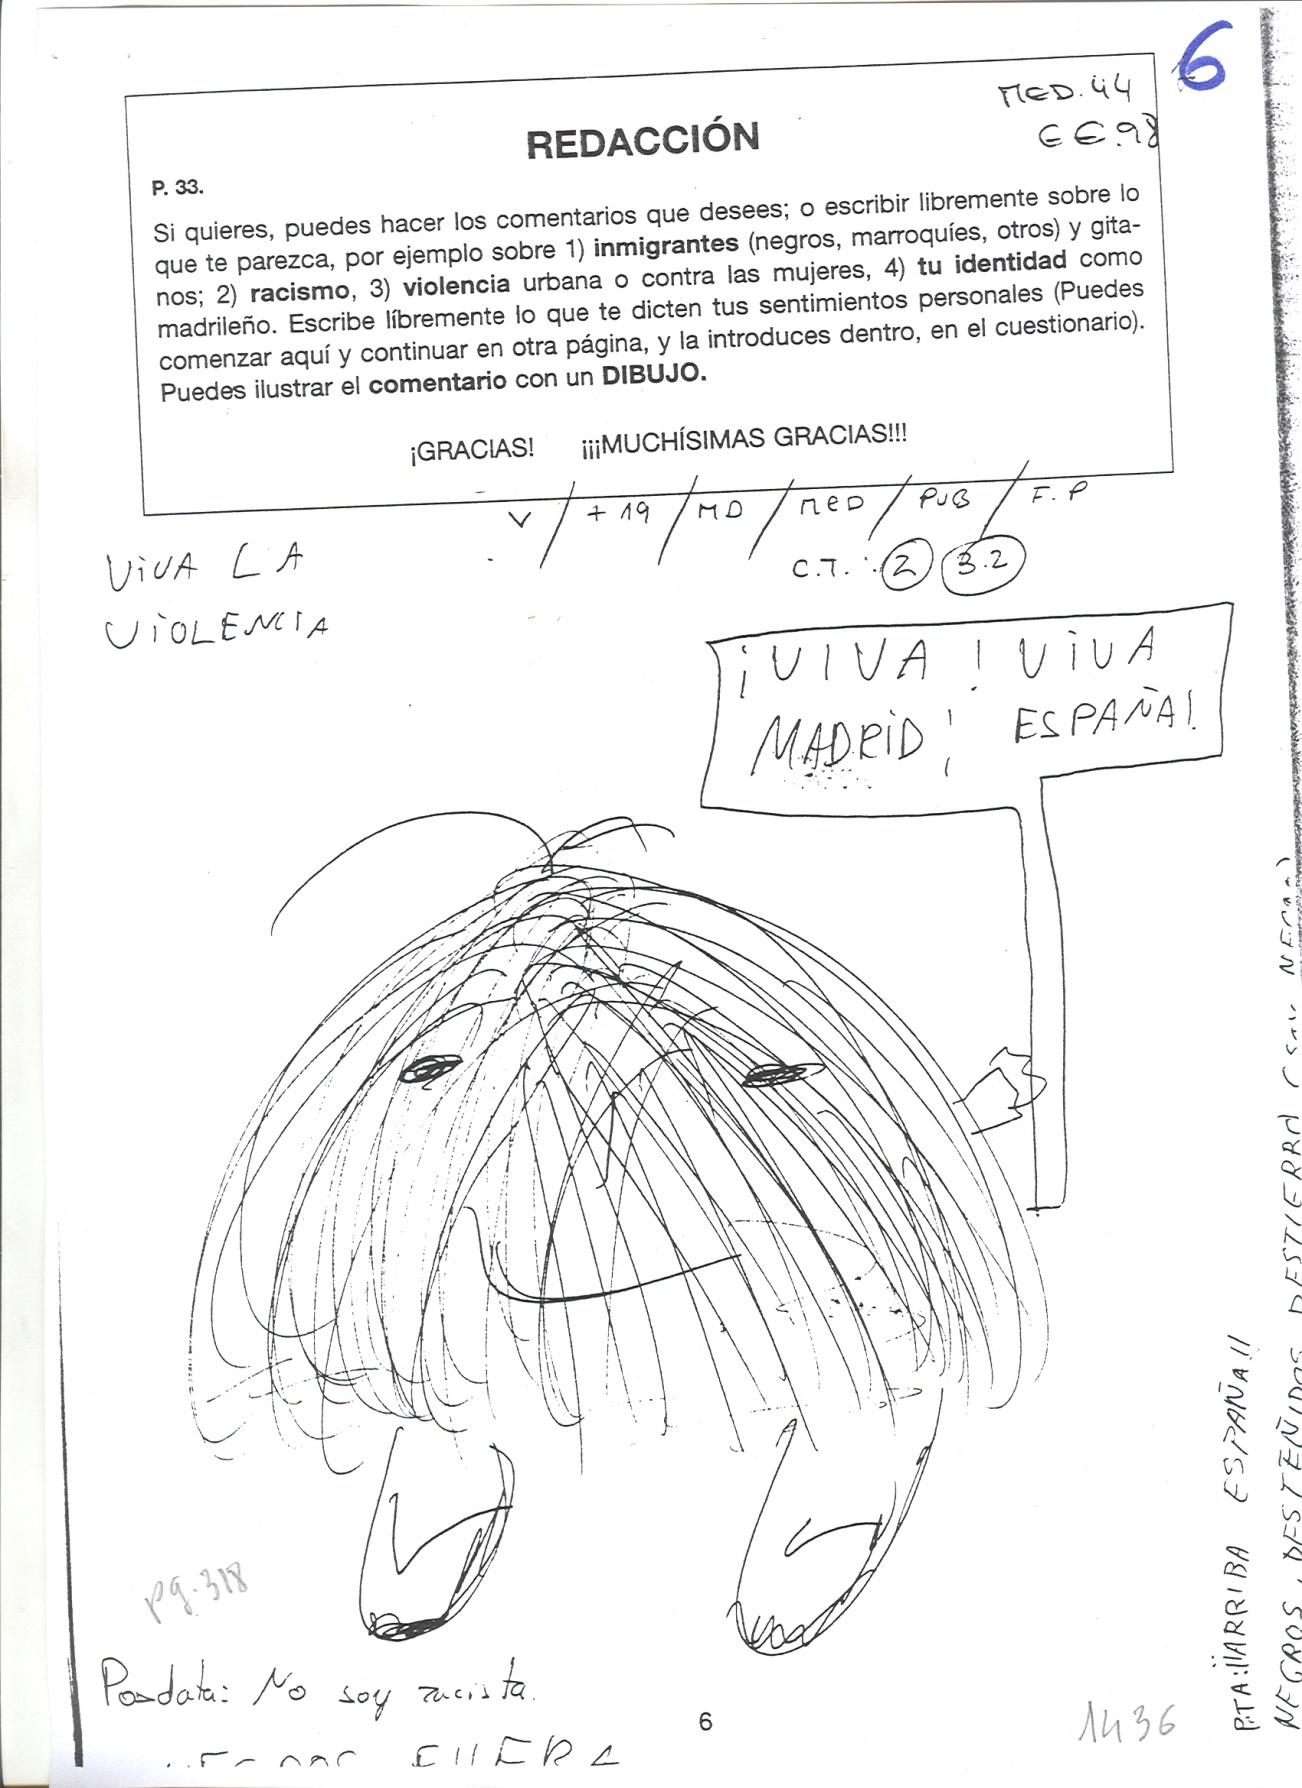 6
MED. 44
E E.98
REDACCIÓN
P. 33.
Si quieres, puedes hacer los comentarios que desees; o escribir libremente sobre lo
que te parezca, por ejemplo sobre 1) inmigrantes (negros, marroquíes, otros) y gita-
nos; 2) racismo, 3) violencia urbana o contra las mujeres, 4) tu identidad como
madrileño. Escribe líbremente lo que te dicten tus sentimientos personales (Puedes
comenzar aquí y continuar en otra página, y la introduces dentro, en el cuestionario).
Puedes ilustrar el comentario con un DIBUJO.
¡GRACIAS! ¡¡¡MUCHÍSIMAS GRACIAS!!!
V / + 19 / MD / MED / PUB / F.P
C.T.: 2 3.2
ViVA LA
ViOLENCIA
¡VIVA ! ViVA
MADRiD! ESPAÑA!
pg. 318
Posdata: No soy racista.
FUERA
6
1436
P.TA: ¡¡ARRIBA ESPAÑA!!
NEGROS, DESTEÑIDOS, DESTIERRO (SOY NEGRO)